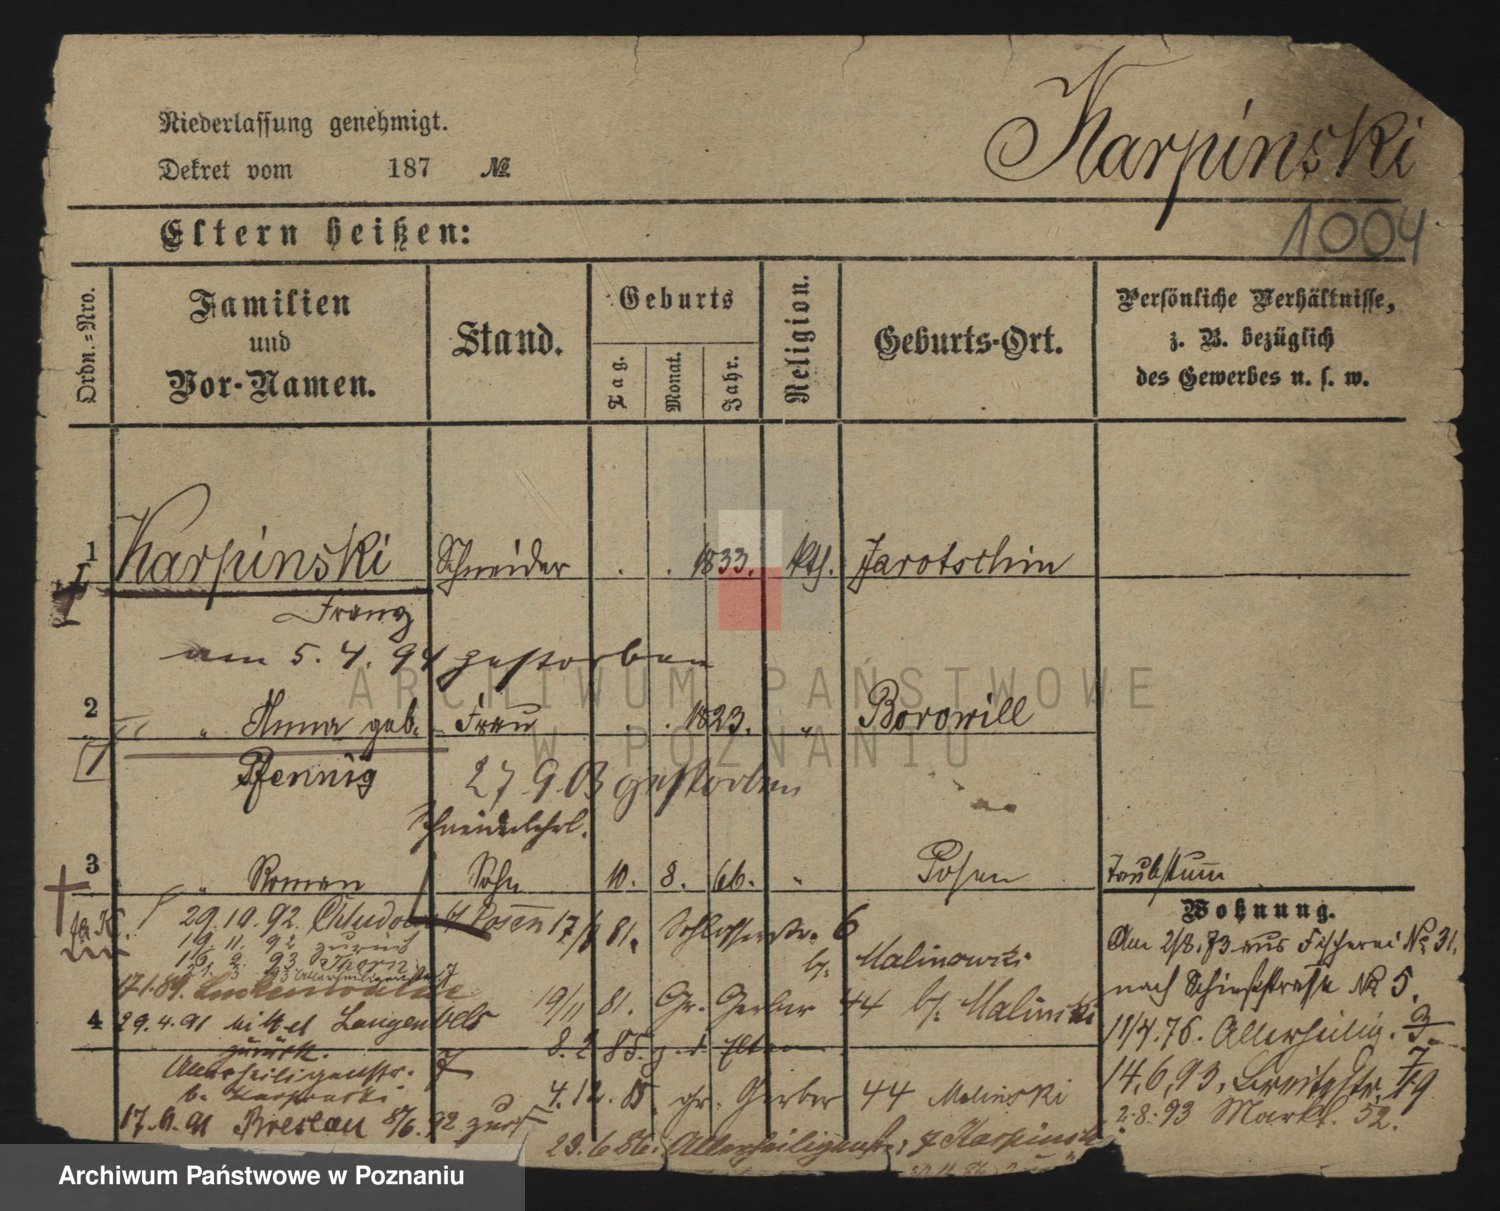 Karpinski
Niederlassung genehmigt.
Dekret vom 187 №
1004
Eltern heißen:
Ordn.=Nro.
Familien und Vor-Namen.
Stand.
Geburts
Tag.
Monat.
Jahr.
Religion.
Geburts-Ort.
Persönliche Verhältnisse,
z. B. bezüglich
des Gewerbes u. s. w.
1 Karpinski Schneider . . 1833. kth. Jarotschin
Franz
am 5. 4. 94 gestorben
ARCHIWUM PAŃSTWOWE
W POZNANIU
2 " Anna geb. Frau . . 1823. " Borowill
Pfennig 27.9.03 gestorben
Schneiderlehrl.
3 " Roman Sohn 10. 8. 66. " Posen Taubstum̅
Wohnung.
29.10.92. Posen 17/ 81. Schlosserstr. 6
19. 11. 92 zurück
16. 2. 93 Thorn
b/ Malinowski
Am 2/8.73 aus Fischerei № 31.
nach Schießstraße № 5.
17.1.89. Luckenwalde 19/11 81. Gr. Gerber 44 b/. Malinski
4 29.4.91 Langen
zurück. 8.2.85. z. d. Eltern
11/4.76. Allerheilig. 3.
Allerheiligenstr. 7
b. Karpinski 4.12. 85. gr. Gerber 44 Malinski
14.6.93. Breitestr. 19
2.8.93 Markt. 52.
17. 91 Breslau 8/6.92 zur
23.6.86. Allerheiligenstr. 7 Karpinski
Archiwum Państwowe w Poznaniu